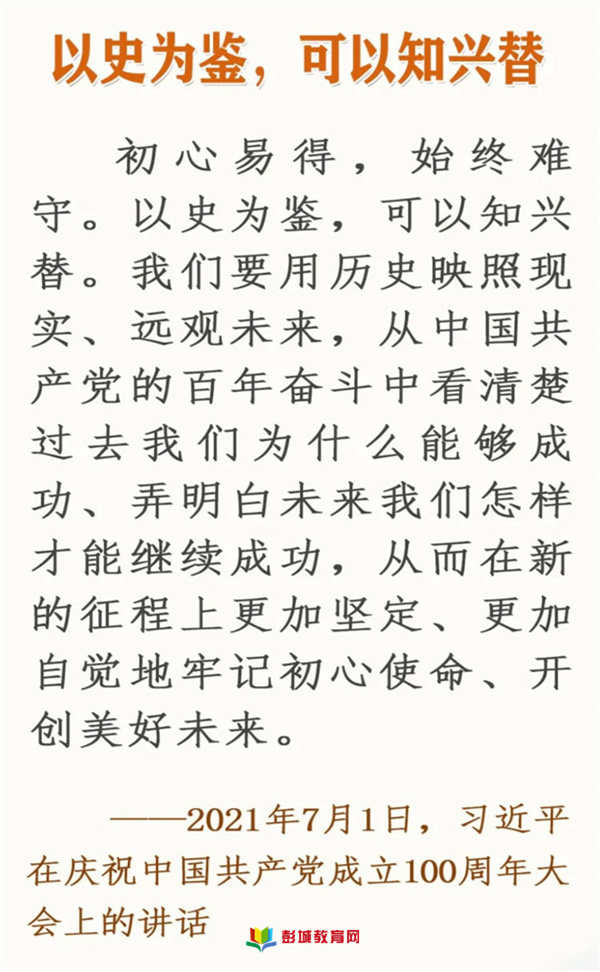 以史为鉴，可以知兴替
初心易得，始终难
守。以史为鉴，可以知兴
替。我们要用历史映照现
实、远观未来，从中国共
产党的百年奋斗中看清楚
过去我们为什么能够成
功、弄明白未来我们怎样
才能继续成功，从而在新
的征程上更加坚定、更加
自觉地牢记初心使命、开
创美好未来。
——2021年7月1日，习近平
在庆祝中国共产党成立100周年大
会上的讲话
彭城教育网